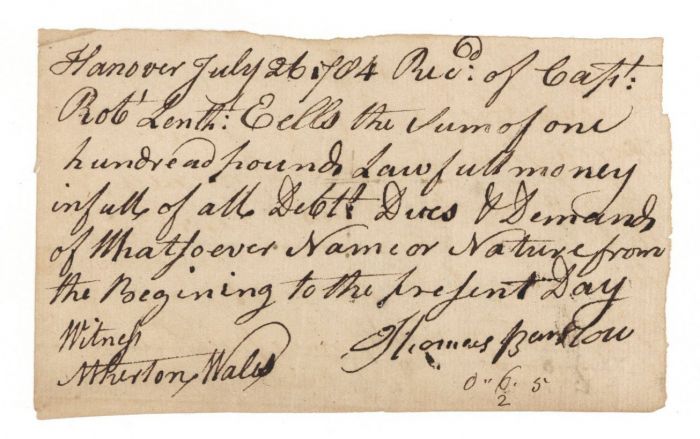 Hanover July 26 1784 Recd: of Capt:
Robt Lenthl: Eells the Sum of one
hundread pounds Lawfull money
in full of all Debts Dues & Demands
of Whatsoever Name or Nature from
the Begining to the present Day
Witness Thomas Barstow
Atherton Wales
0 " 6. 5
2